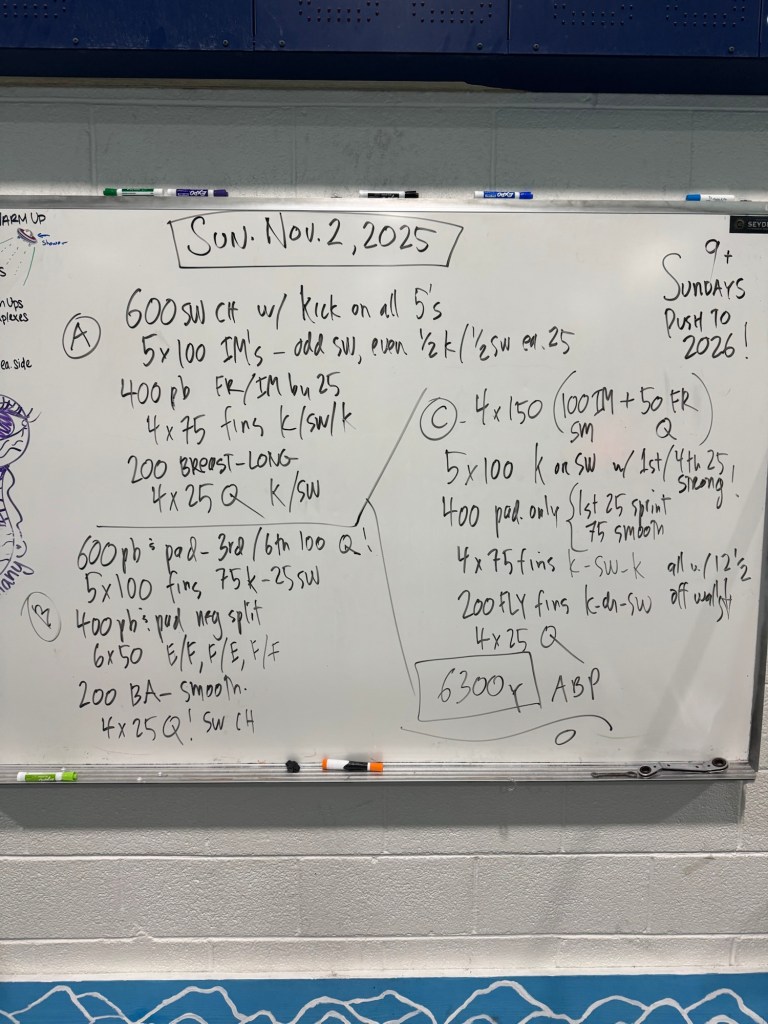 ARM UP
Shower
ea. side
SUN. NOV. 2, 2025
9+
SUNDAYS
PUSH TO
2026!
SEYD
A
600 SW CH w/ kick on all 5's
5x100 IM's - odd SW, even 1/2 k/1/2 SW ea. 25
400 pb FR/IM by 25
4 x 75 fins k/sw/k
200 BREAST-LONG
4 x 25 Q K/SW
B
600 pb & pad - 3rd/6th 100 Q!
5x100 fins 75k-25sw
400 pb & pad neg split
6x50 E/F, F/E, F/F
200 BA- smooth.
4x25 Q! SW CH
C - 4x150 (100 IM + 50 FR)
SM Q
5x100 k on SW w/ 1st/4th 25
strong!
400 pad. only { 1st 25 sprint
75 smooth
4x75 fins k-sw-k all w/ 12 1/2
200 FLY fins k-dn-sw off walls
4x25 Q
6300y ABP